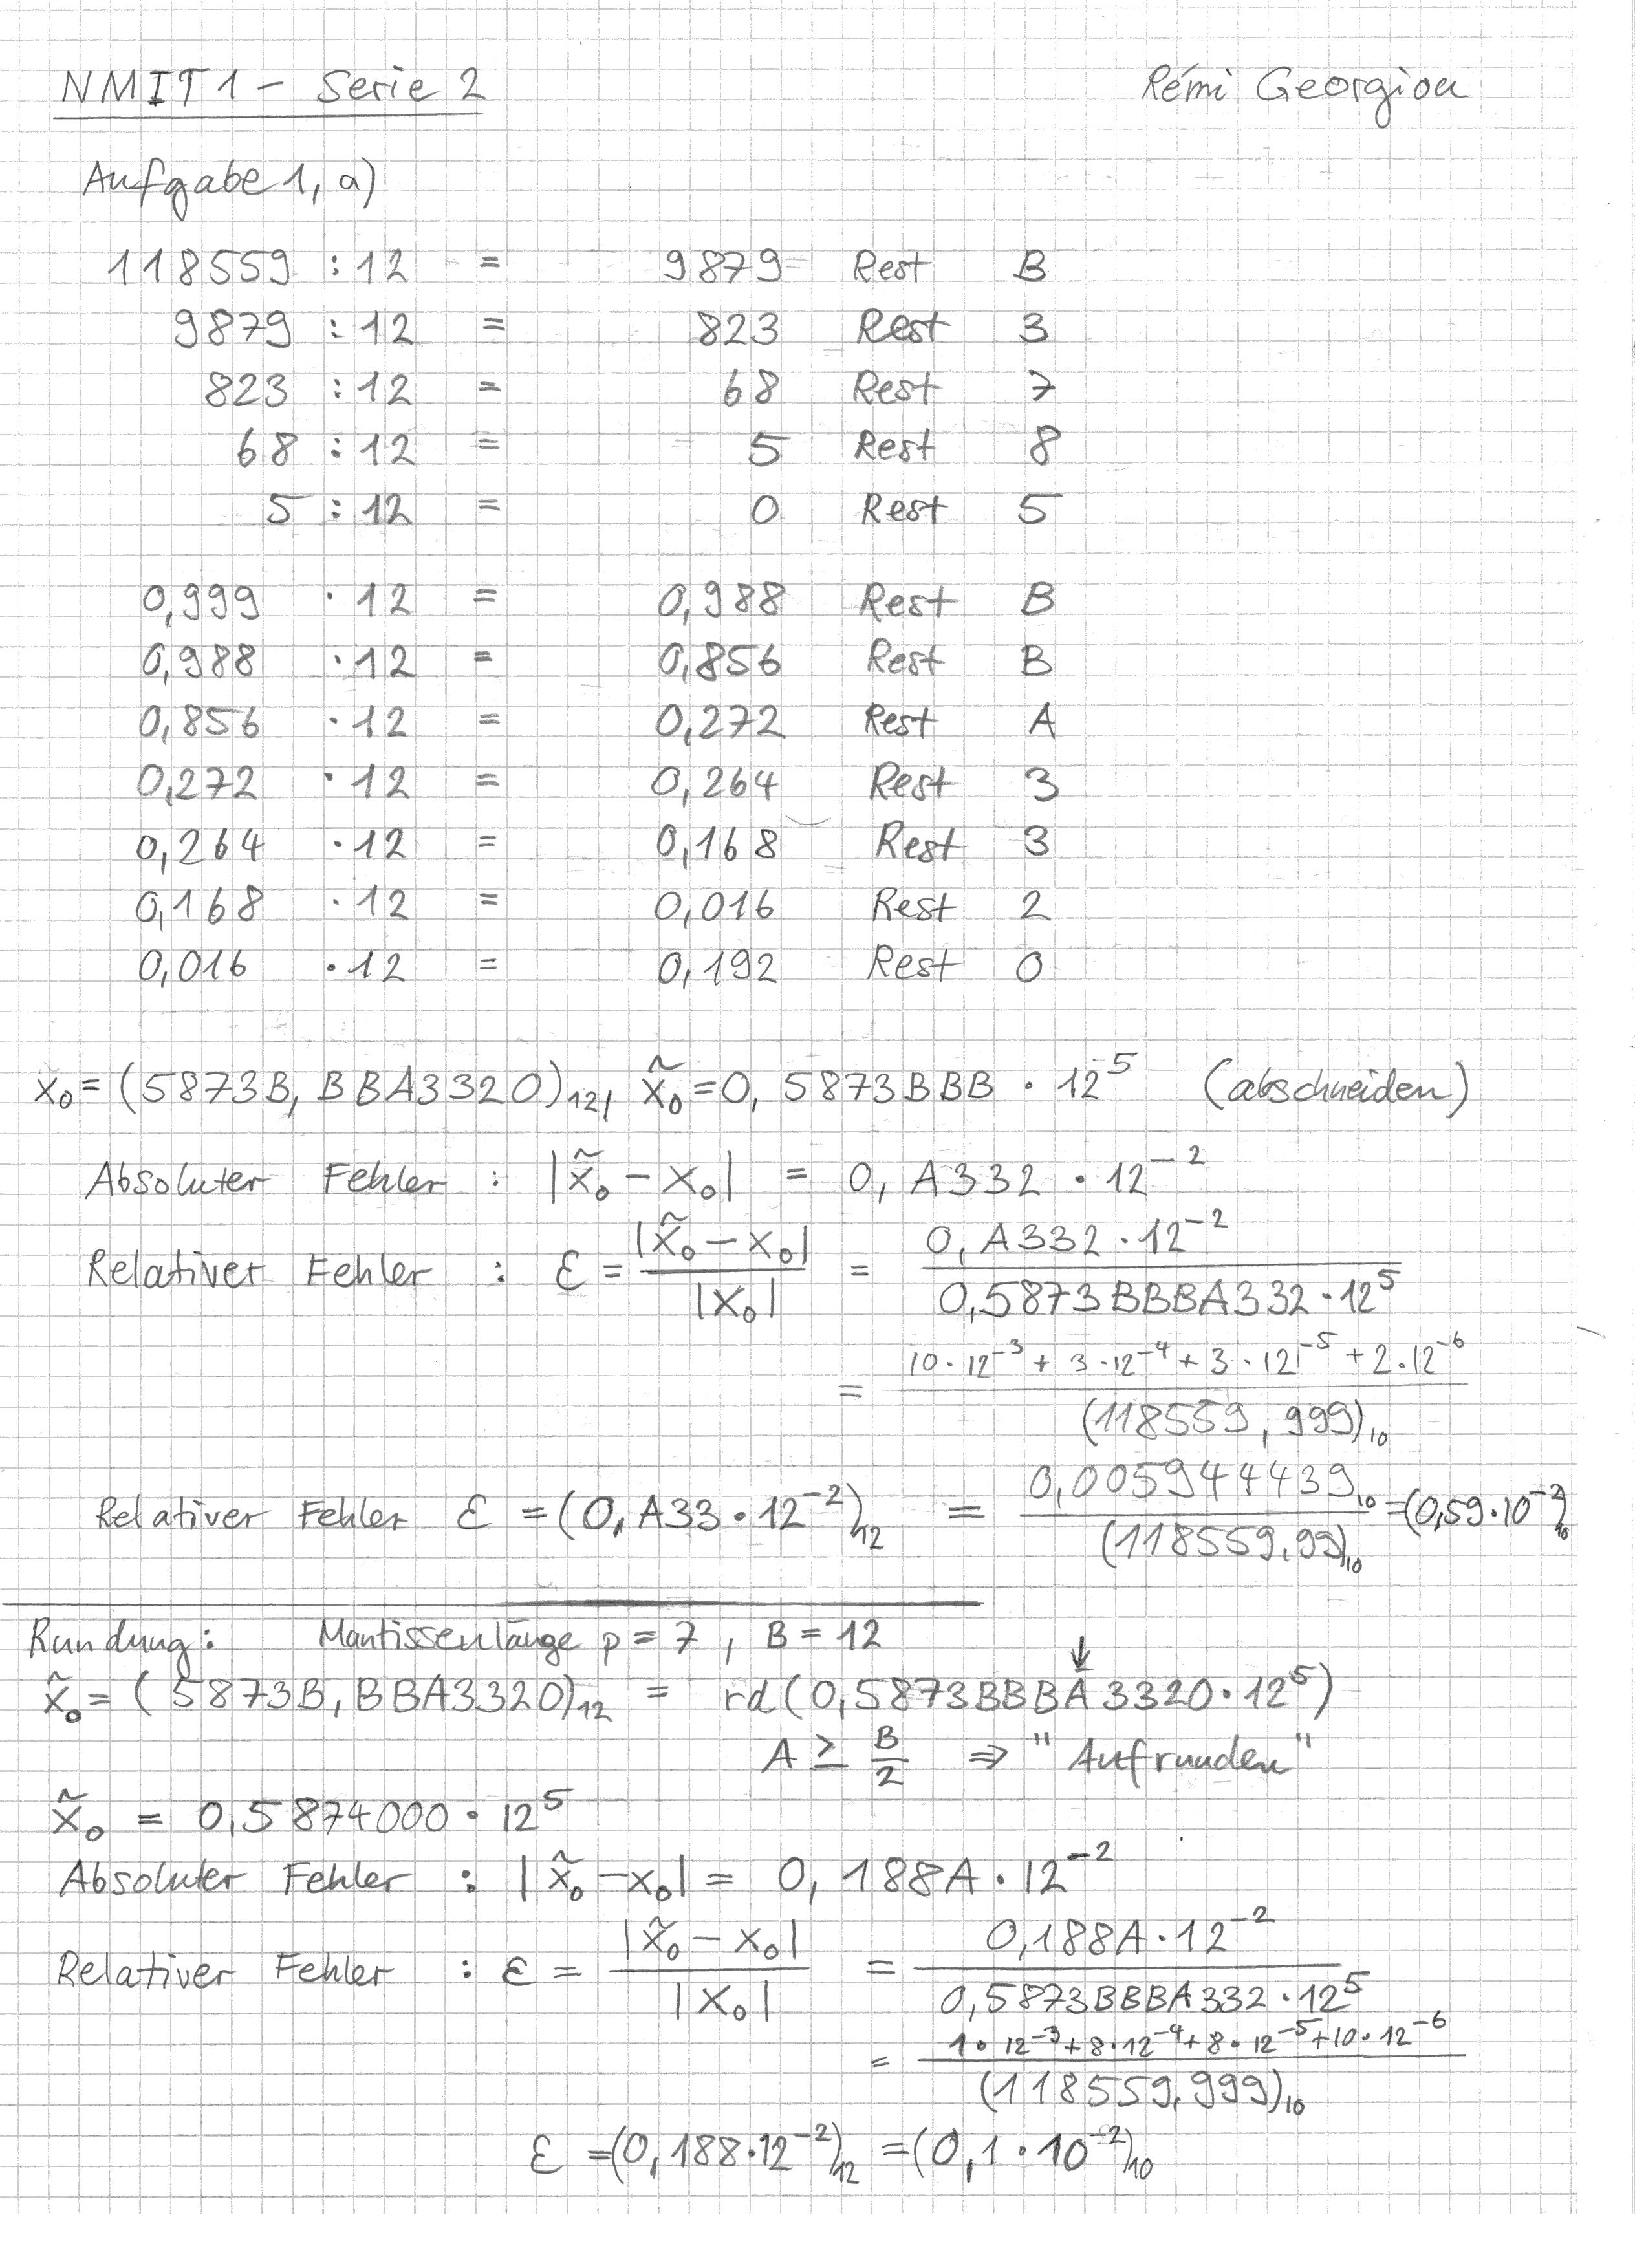 NMIT1 - Serie 2 Rémi Georgiou
Aufgabe 1, a)
118559 : 12 = 9879 Rest B
9879 : 12 = 823 Rest 3
823 : 12 = 68 Rest 7
68 : 12 = 5 Rest 8
5 : 12 = 0 Rest 5
0,999 · 12 = 0,988 Rest B
0,988 · 12 = 0,856 Rest B
0,856 · 12 = 0,272 Rest A
0,272 · 12 = 0,264 Rest 3
0,264 · 12 = 0,168 Rest 3
0,168 · 12 = 0,016 Rest 2
0,016 · 12 = 0,192 Rest 0
x₀ = (5873B, BBA3320)₁₂, x̃₀ = 0, 5873BBB · 12⁵ (abschneiden)
Absoluter Fehler : |x̃₀ - x₀| = 0, A332 · 12⁻²
Relativer Fehler : ε = |x̃₀ - x₀| / |x₀| = 0, A332 · 12⁻² / 0,5873BBBA332 · 12⁵
= 10 · 12⁻³ + 3 · 12⁻⁴ + 3 · 12⁻⁵ + 2 · 12⁻⁶ / (118559, 999)₁₀
Relativer Fehler ε = (0, A33 · 12⁻²)₁₂ = 0,005944439₁₀ / (118559,99)₁₀ = (0,59 · 10⁻²)₁₀
Rundung: Mantissenlänge p = 7, B = 12
x̃₀ = (5873B, BBA3320)₁₂ = rd(0,5873BBBA3320 · 12⁵)
A ≥ B/2 ⇒ "Aufrunden"
x̃₀ = 0,5874000 · 12⁵
Absoluter Fehler : |x̃₀ - x₀| = 0, 188A · 12⁻²
Relativer Fehler : ε = |x̃₀ - x₀| / |x₀| = 0,188A · 12⁻² / 0,5873BBBA332 · 12⁵
= 1 · 12⁻³ + 8 · 12⁻⁴ + 8 · 12⁻⁵ + 10 · 12⁻⁶ / (118559,999)₁₀
ε = (0, 188 · 12⁻²)₁₂ = (0,1 · 10⁻²)₁₀